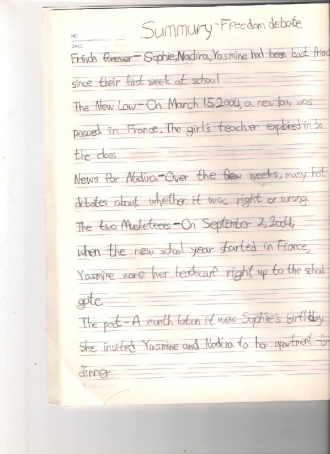 Summury - Freedom debate
NO.
DATE.
Frinds forever - Sophie, Nadira, Yasmine had been best friend
since their fist week at school
The New Law - On March 15, 2004, a new law was
passed in France. The girl's teacher explained in to
the class
News for Nadira - Over the few weeks, many hot
debates about whether it was right or wrong.
The two Musketeers - On September 2, 2004,
when the new school year started in France,
Yasmine wore her hardscarf right up to the school
gate
The poet - A month later it was Sophie's birthday
She invited Yasmine and Nadira to her apartment
dinner